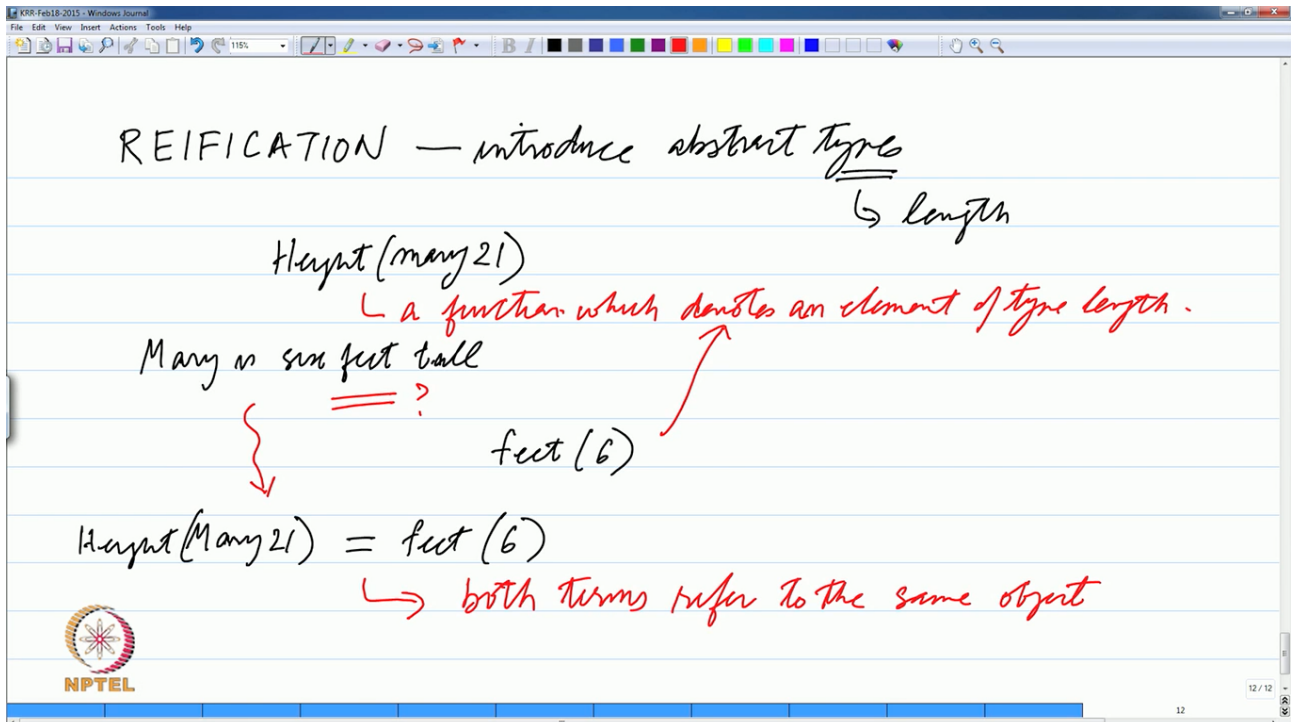 KRR-Feb18-2015 - Windows Journal
File Edit View Insert Actions Tools Help
115%
B I
REIFICATION — introduce abstract types
↳ length
Height (mary 21)
↳ a function which denotes an element of type length.
Mary is six feet tall
?
feet (6)
Height (Mary 21) = feet (6)
↳ both terms refer to the same object
NPTEL
12 / 12
12